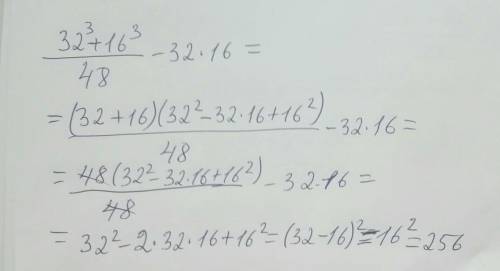 (32³+16³)/48 − 32·16 =
= (32+16)(32²−32·16+16²)/48 − 32·16 =
= 48(32²−32·16+16²)/48 − 32·16 =
= 32²−2·32·16+16² = (32−16)² = 16² = 256